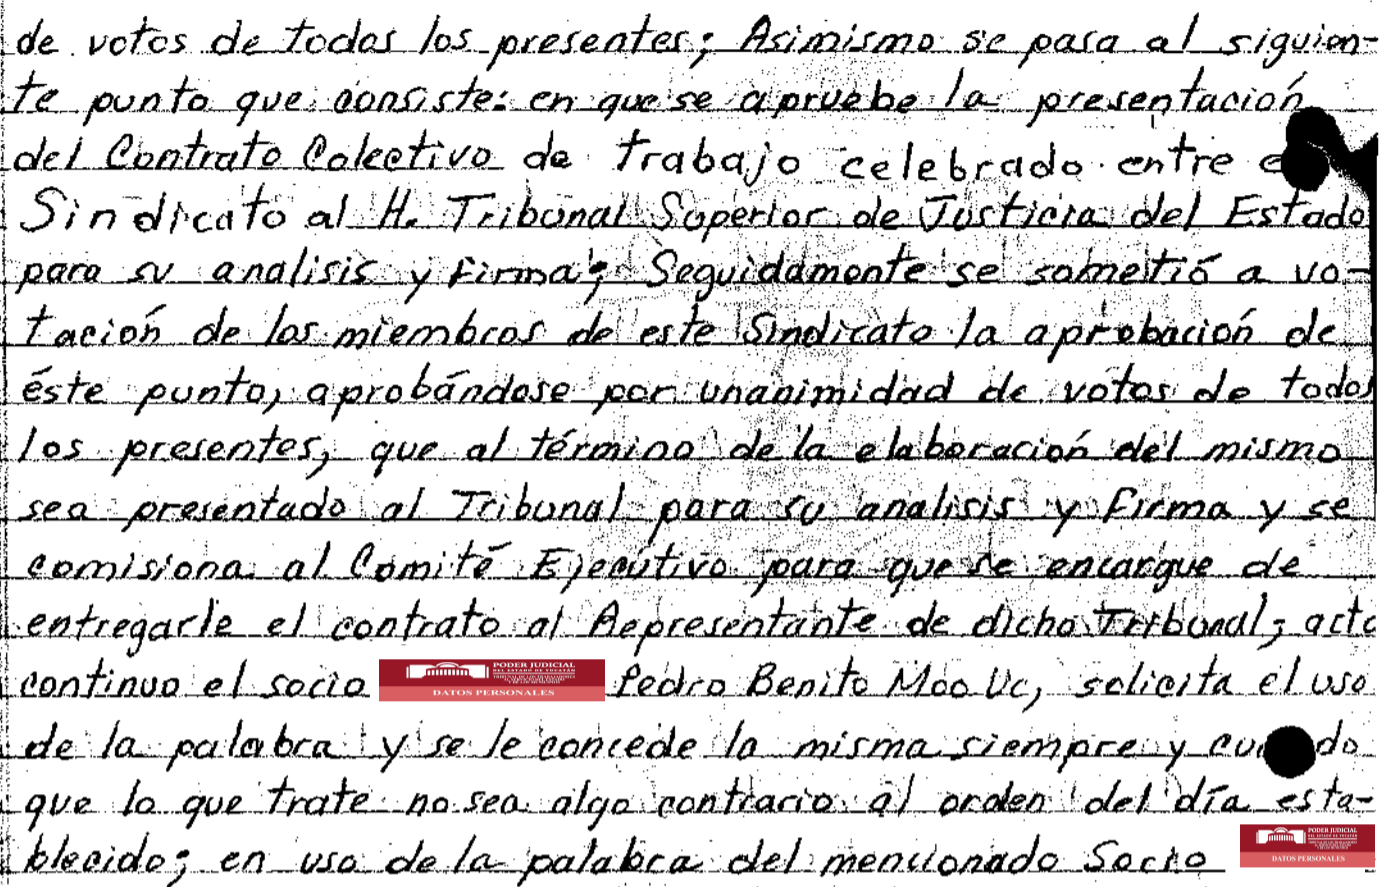 de votos de todos los presentes; Asimismo se pasa al siguien-
te punto que consiste: en que se apruebe la presentación
del Contrato Colectivo de trabajo celebrado entre e
Sindicato al H. Tribunal Superior de Justicia del Estado
para su analisis y firma; Seguidamente se sometió a vo-
tación de los miembros de este Sindicato la aprobación de
éste punto, aprobándose por unanimidad de votos de todos
los presentes, que al término de la elaboración del mismo
sea presentado al Tribunal para su analisis y firma y se
comisiona al Comité Ejecutivo para que se encargue de
entregarle el contrato al Representante de dicho Tribunal; acto
continuo el socio PODER JUDICIAL DEL ESTADO DE YUCATÁN DATOS PERSONALES Pedro Benito Moo Uc, solicita el uso
de la palabra y se le concede la misma siempre y cu do
que lo que trate no sea algo contrario al orden del día esta-
blecido; en uso de la palabra del mencionado Socio PODER JUDICIAL DEL ESTADO DE YUCATÁN DATOS PERSONALES